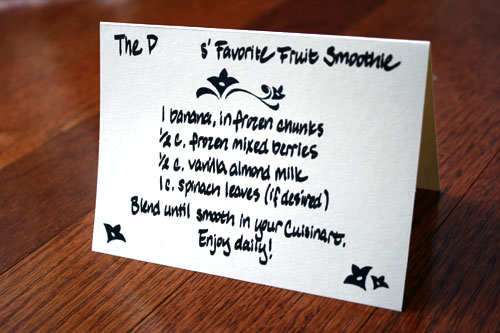 The D s' Favorite Fruit Smoothie
1 banana, in frozen chunks
½ c. frozen mixed berries
½ c. vanilla almond milk
1 c. spinach leaves (if desired)
Blend until smooth in your Cuisinart.
Enjoy daily!